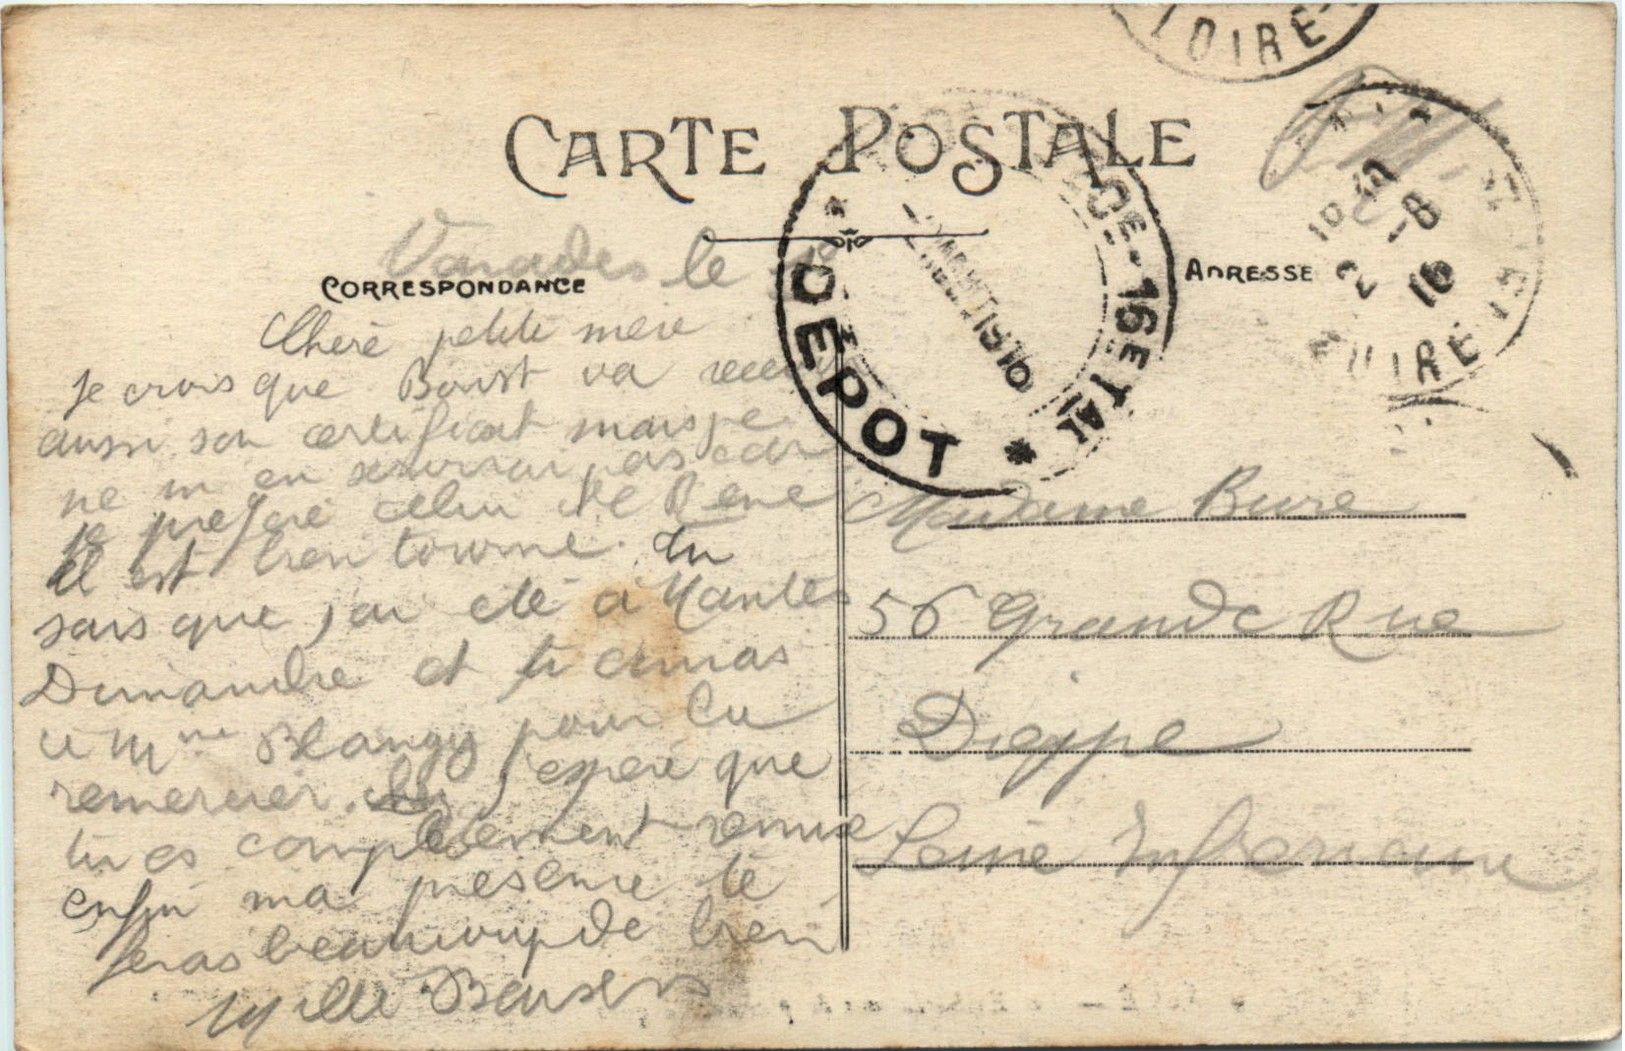 CARTE POSTALE
CORRESPONDANCE
ADRESSE
LOIRE
DEPOT
2 -8 16
Varades le
Chere petite mere
Je crois que va
aussi son certificat mais je
ne m en servirai pas car
je prefere celui de Rene
il est bien tourné. tu
sais que j ai été à Nantes
Dimanche et tu
a Mme Blangy pour la
remercier. j'espere que
tu es completement remise
enfin ma presence te
feras beaucoup de bien
Mille Baisers
Madame Bure
56 Grande Rue
Dieppe
Seine Inferieure